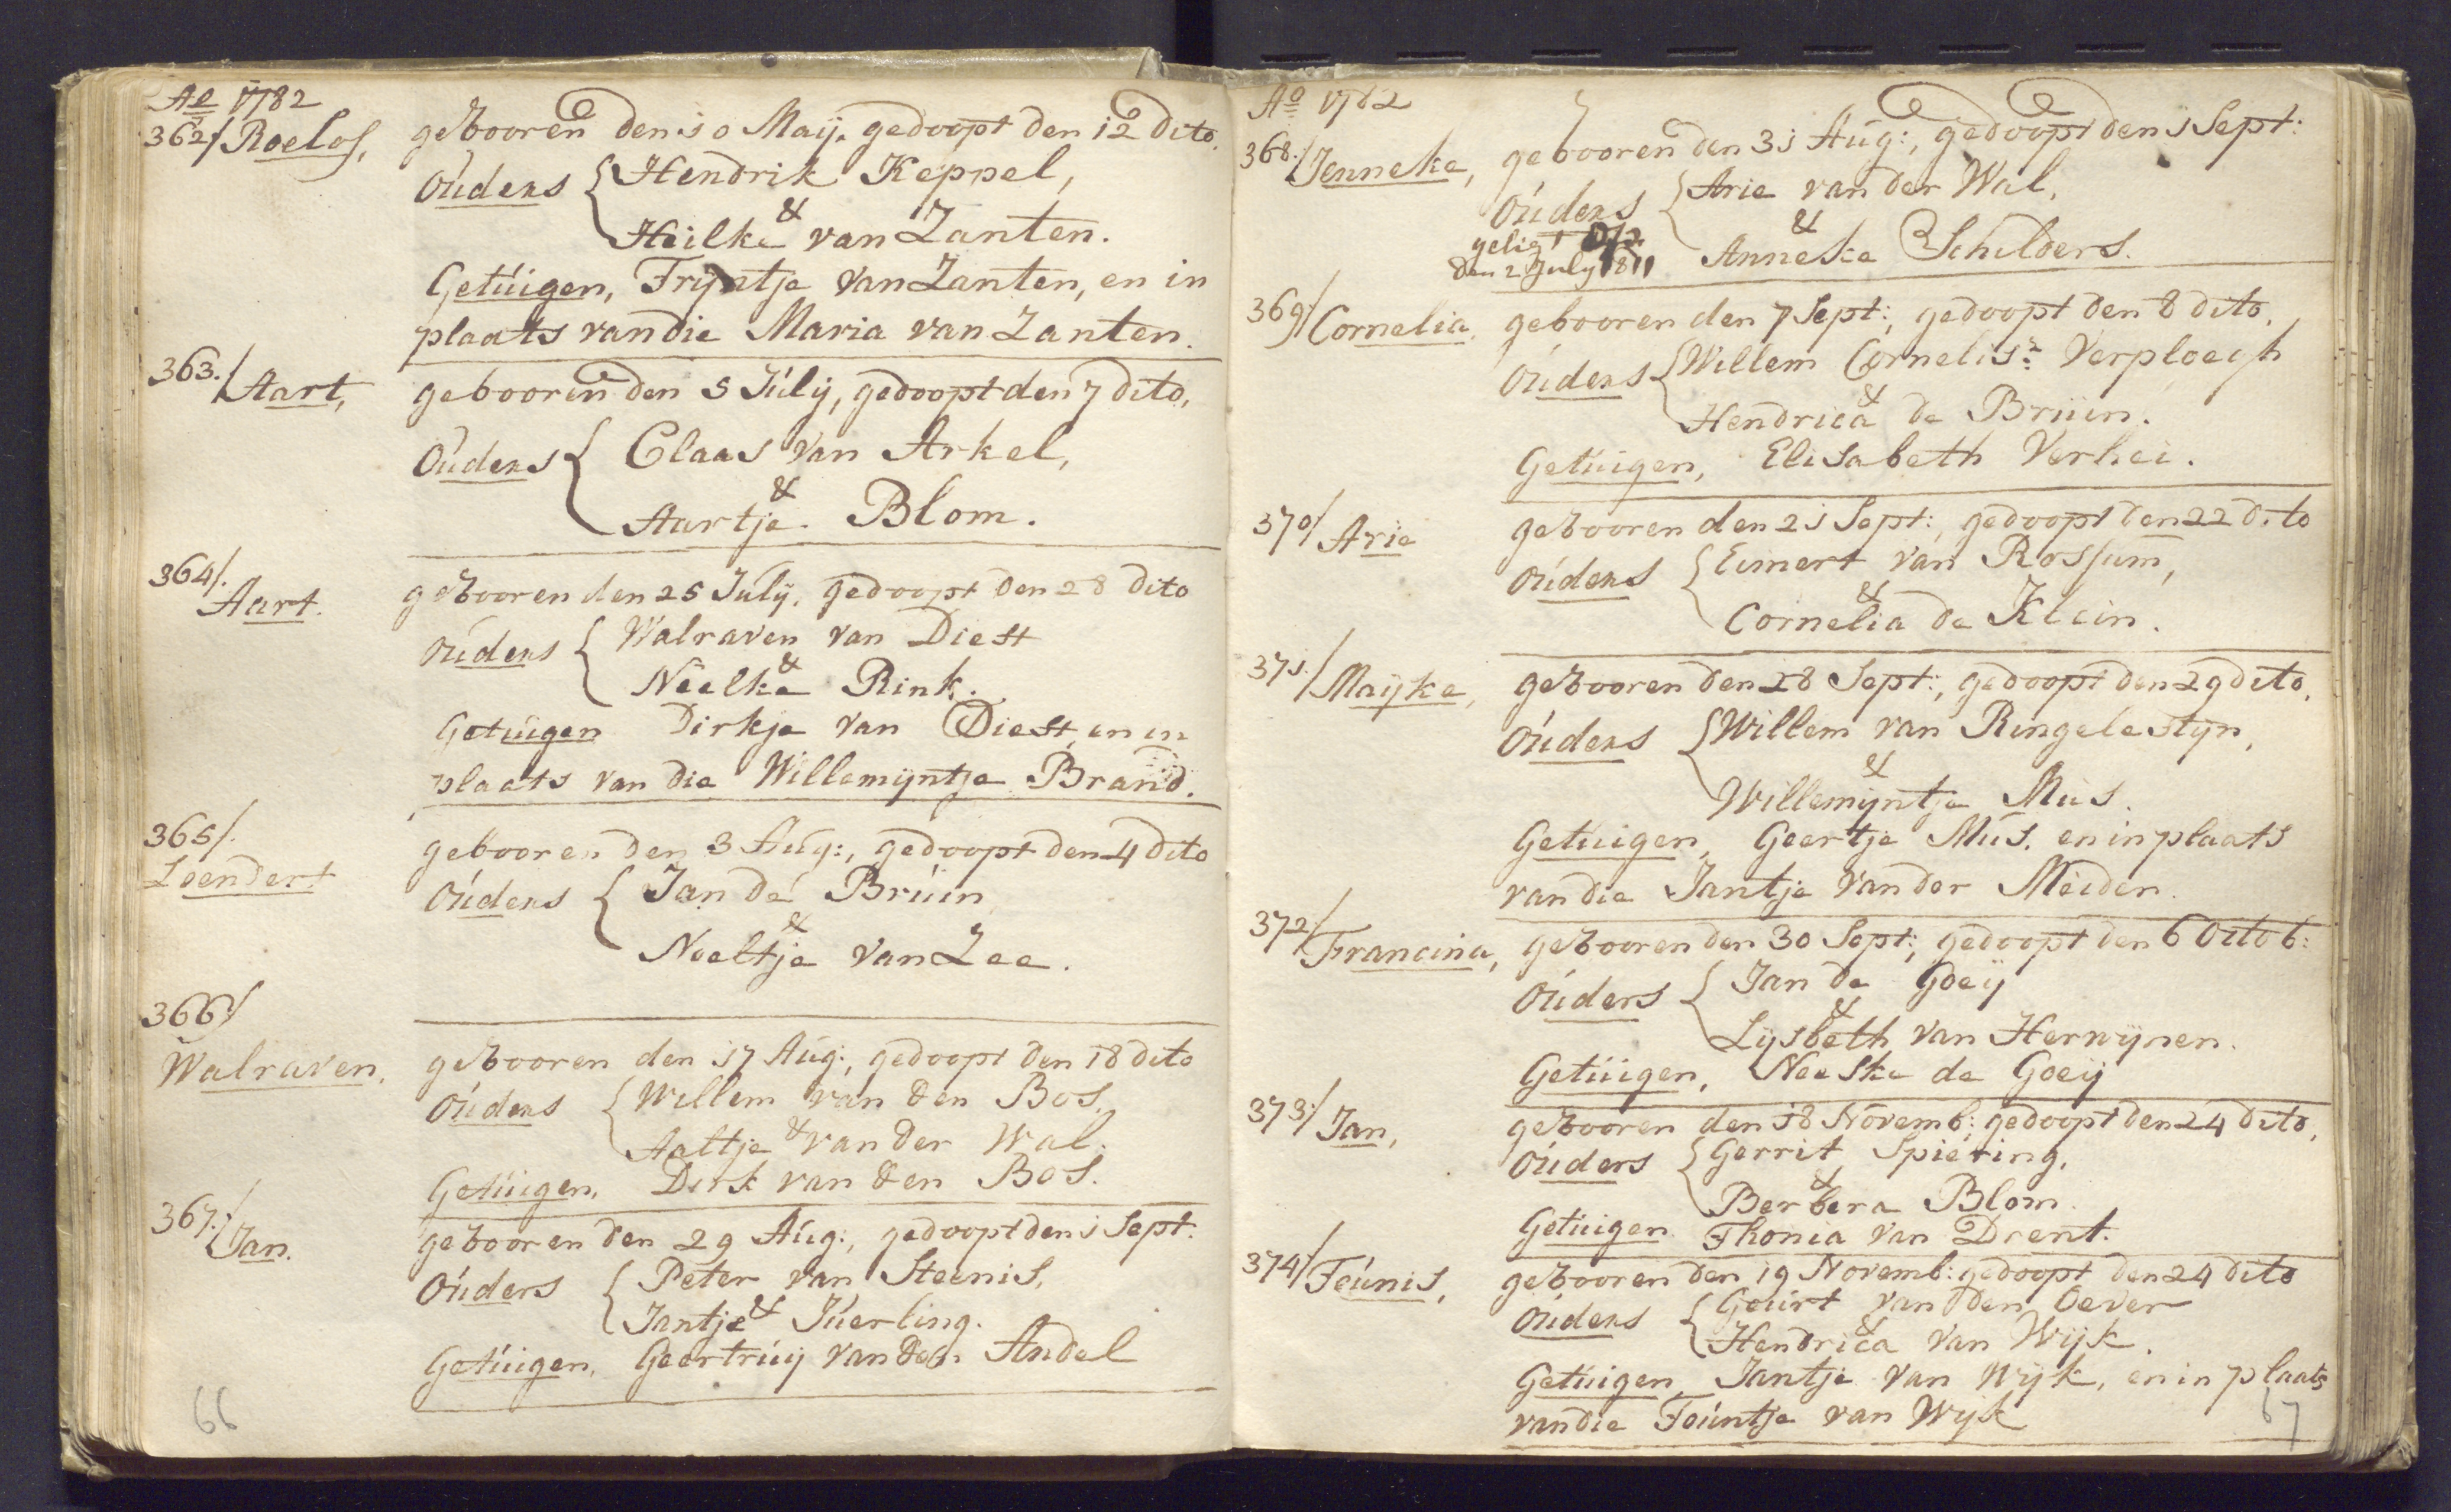 Ao 1782
362/ Roelof, gebooren den 10 Maij, gedoopt den 12 dito.
Ouders { Hendrik Keppel,
&
Heilke van Zanten.
Getuigen, Trijntje van Zanten, en in
plaats van die Maria van Zanten.
363./ Aart, gebooren den 5 Julij, gedoopt den 7 dito,
Ouders { Claas van Arkel,
&
Aartje Blom.
364/. Aart. gebooren den 25 Julij, gedoopt den 28 dito
Ouders { Walraven van Diest
&
Neelke Rink.
Getuigen Dirkje van Diest, en in
plaats van die Willemijntje Brand.
365/.
Leendert gebooren den 3 Aug:, gedoopt den 4 dito
Ouders { Jan de Bruin
&
Neeltje van Zee.
366/
Walraven, gebooren den 17 Aug:, gedoopt den 18 dito
Ouders { Willem van den Bos,
&
Aaltje van der Wal.
Getuigen, Dirk van den Bos.
367./ Jan. gebooren den 29 Aug:, gedoopt den 1 Sept.
Ouders { Peter van Steenis,
&
Jantje Juerling.
Getuigen, Geertruij van den Andel
66
Ao 1782
368./ Jenneke, gebooren den 31 Aug:, gedoopt den 1 Sept:
Ouders { Arie van der Wal,
&
Anneke Schilders.
geligt
den 2 July 1811
369/ Cornelia, gebooren den 7 Sept:, gedoopt den 8 dito,
Ouders { Willem Cornelisz: Verploegh
&
Hendrica de Bruin.
Getuigen, Elisabeth Verhei.
370/ Arie gebooren den 21 Sept:, gedoopt den 22 dito
Ouders { Eimert van Rossum,
&
Cornelia de Klein.
371./ Maijke, gebooren den 28 Sept:, gedoopt den 29 dito,
Ouders { Willem van Ringelestijn,
&
Willemijntje Mus.
Getuigen, Geertje Mus, en in plaats
van die Jantje van der Meiden.
372/ Francina, gebooren den 30 Sept:, gedoopt den 6 Octob:
Ouders { Jan de Goeij
&
Lijsbeth van Herwijnen.
Getuigen, Neeske de Goeij
373/ Jan, gebooren den 18 Novemb: gedoopt den 24 dito,
Ouders { Gerrit Spiering,
&
Berbera Blom.
Getuigen Thonia van Drent.
374/ Teunis, gebooren den 19 Novemb: gedoopt den 24 dito
Ouders { Geurt van den Oever
&
Hendrica van Wijk.
Getuigen, Jantje van Wijk, en in plaats
van die Teuntje van Wijk
67